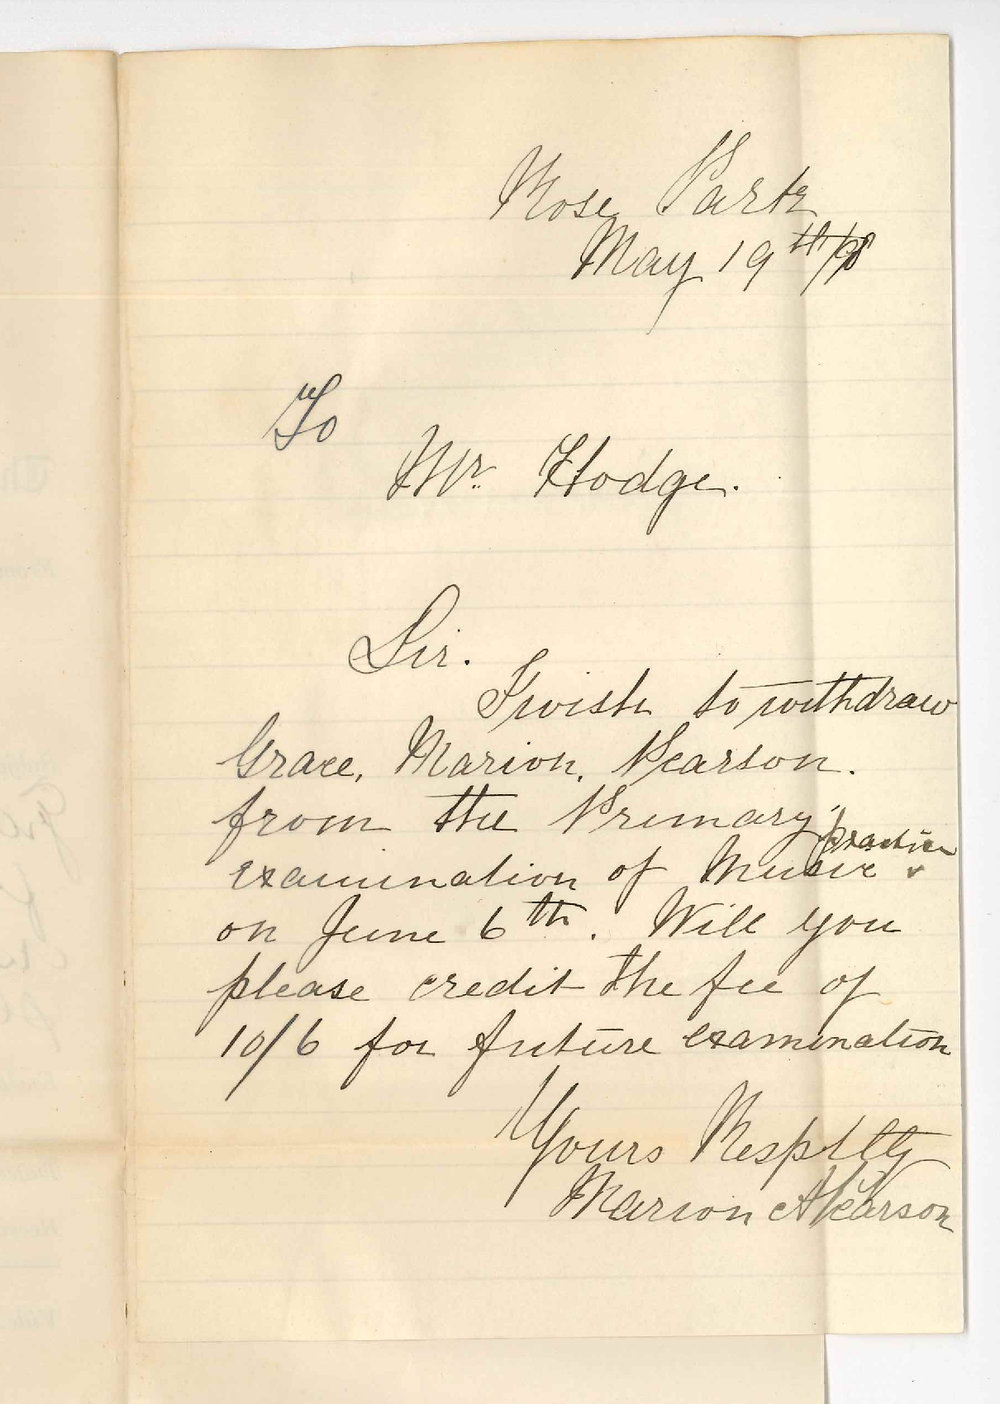 Rose Park
May 19th/98
To
Mr. Hodge.
Sir.
I wish to withdraw
Grace, Marion, Pearson.
from the Primary practice
examination of Music
on June 6th. Will you
please credit the fee of
10/6 for future examination
Yours Respftlly
Marion A Pearson